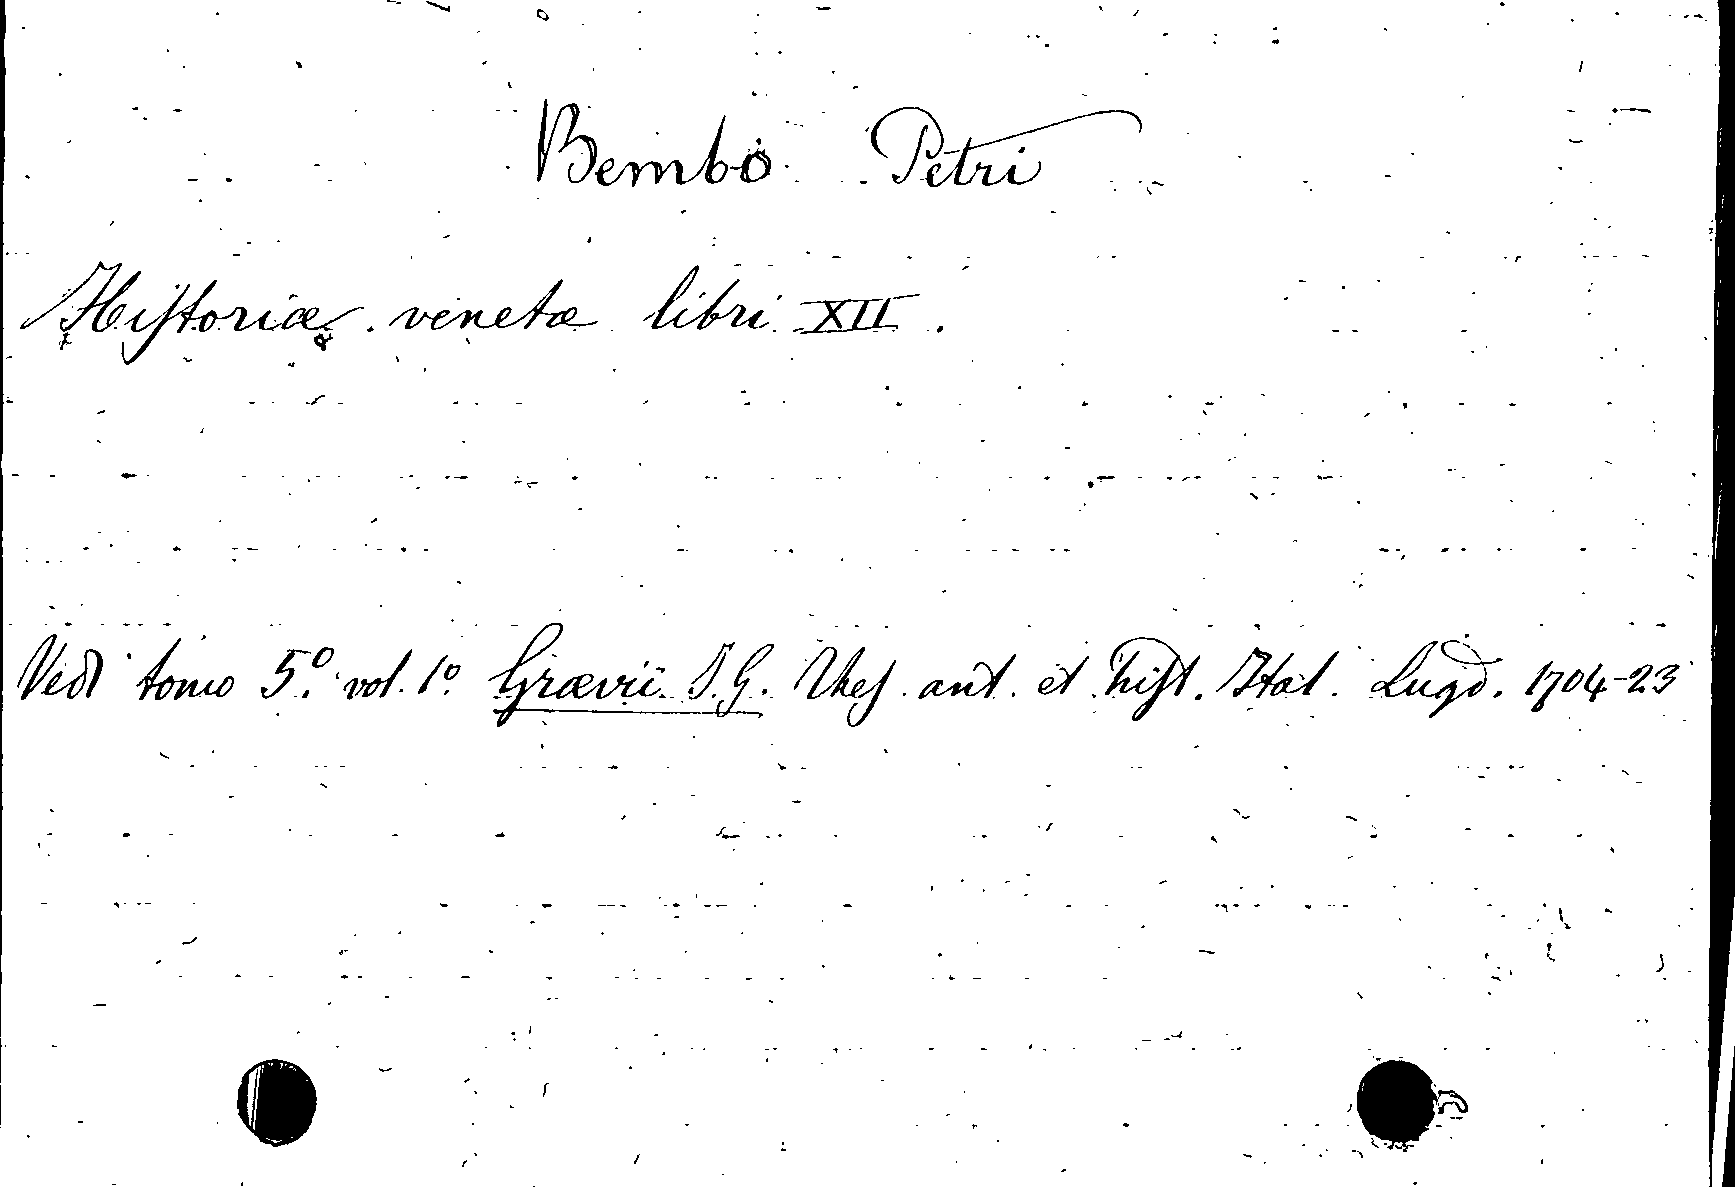 Bembo Petri
Historiæ venetæ libri XII.
Vedi tomo 5.° vol. 1.° Grævii J. G. Thes. ant. et hist. Ital. Lugd. 1704-23